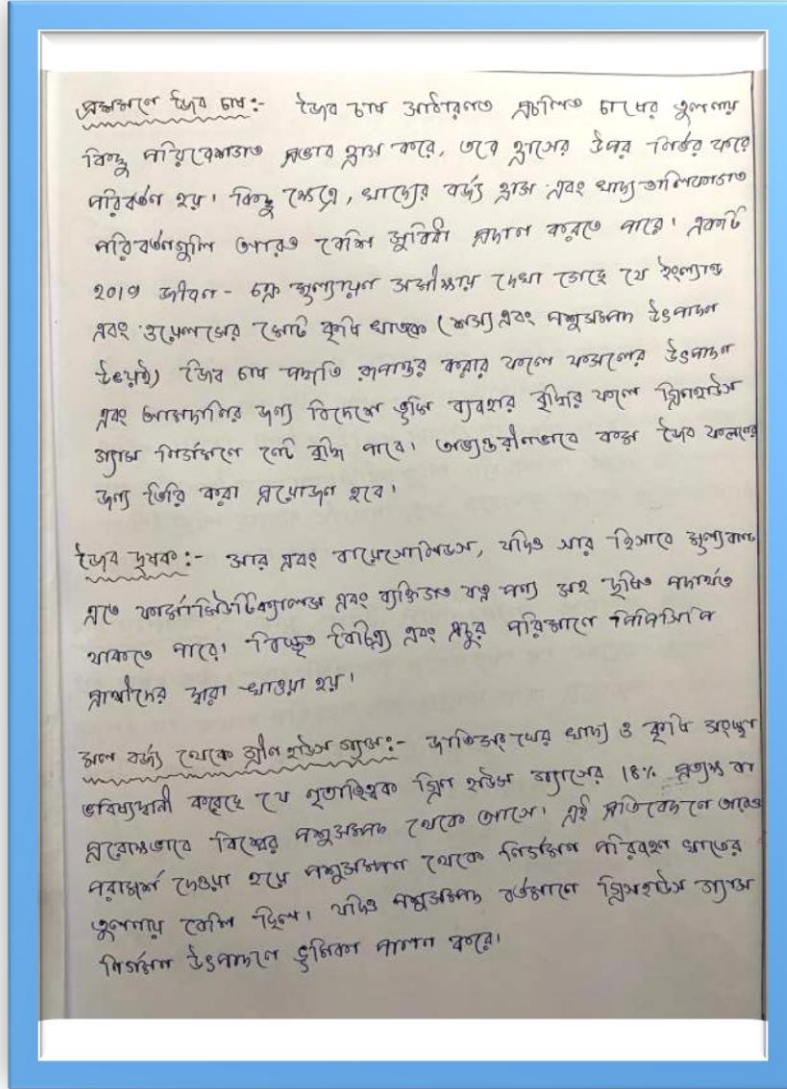 প্রশমনে জৈব চাষ:- জৈব চাষ সাধারণত প্রচলিত চাষের তুলনায়
কিছু পরিবেশগত প্রভাব হ্রাস করে, তবে হ্রাসের উপর নির্ভর করে
পরিবর্তন হয়। কিছু ক্ষেত্রে, খাদ্যের বর্জ্য হ্রাস এবং খাদ্যতালিকাগত
পরিবর্তনগুলি আরও বেশি সুবিধা প্রদান করতে পারে। একটি
2019 জীবন - চক্র মূল্যায়ন সমীক্ষায় দেখা গেছে যে ইংল্যান্ড
এবং ওয়েলসের মোট কৃষি খাতকে (শস্য এবং পশুসম্পদ উৎপাদন
উভয়ই) জৈব চাষ পদ্ধতি রূপান্তর করার ফলে ফসলের উৎপাদন
এবং আমদানির জন্য বিদেশে ভূমি ব্যবহার বৃদ্ধির ফলে গ্রিনহাউস
গ্যাস নির্গমনে নেট বৃদ্ধি পাবে। অভ্যন্তরীণভাবে কম জৈব ফলনের
জন্য তৈরি করা প্রয়োজন হবে।
জৈব দূষক:- সার এবং বায়োসোলিডস, যদিও সার হিসাবে মূল্যবান
এতে ফার্মাসিউটিক্যালস এবং ব্যক্তিগত যত্ন পণ্য সহ দূষিত পদার্থও
থাকতে পারে। বিস্তৃত বৈচিত্র্য এবং প্রচুর পরিমাণে পিপিসিপি
প্রাণীদের দ্বারা খাওয়া হয়।
মল বর্জ্য থেকে গ্রীন হাউস গ্যাস:- জাতিসংঘের খাদ্য ও কৃষি সংস্থা
ভবিষ্যদ্বানী করেছে যে নৃতাত্ত্বিক গ্রিন হাউস গ্যাসের 18% প্রত্যক্ষ বা
পরোক্ষভাবে বিশ্বের পশুসম্পদ থেকে আসে। এই প্রতিবেদনে আরও
পরামর্শ দেওয়া হয়ে পশুসম্পদ থেকে নির্গমন পরিবহন খাতের
তুলনায় বেশি ছিল। যদিও পশুসম্পদ বর্তমানে গ্রিনহাউস গ্যাস
নির্গমন উৎপাদনে ভূমিকা পালন করে।